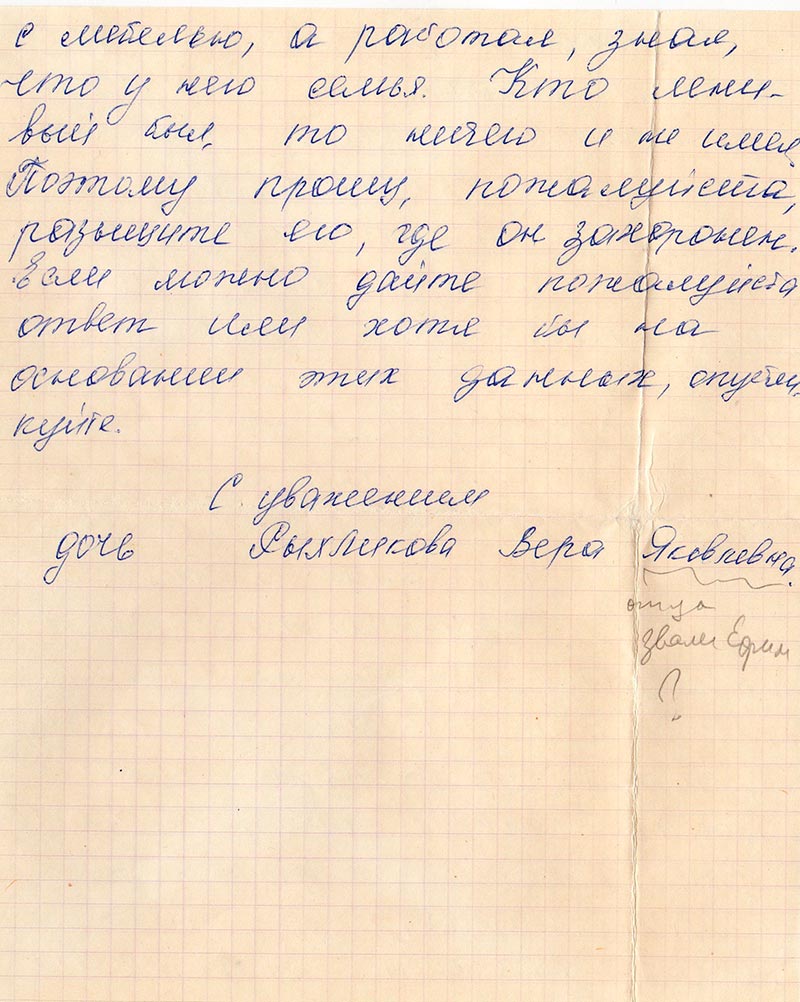 с мебелью, а работал, зная,
что у него семья. Кто лени-
вый был, то ничего и не имел
Поэтому прошу, пожалуйста,
разыщите его, где он захоронен.
Если можно дайте пожалуйста
ответ или хотя бы на
основании этих данных, опубли
куйте.
С уважением
дочь Рыхликова Вера Яковлевна.
отца
звали Ефим
?